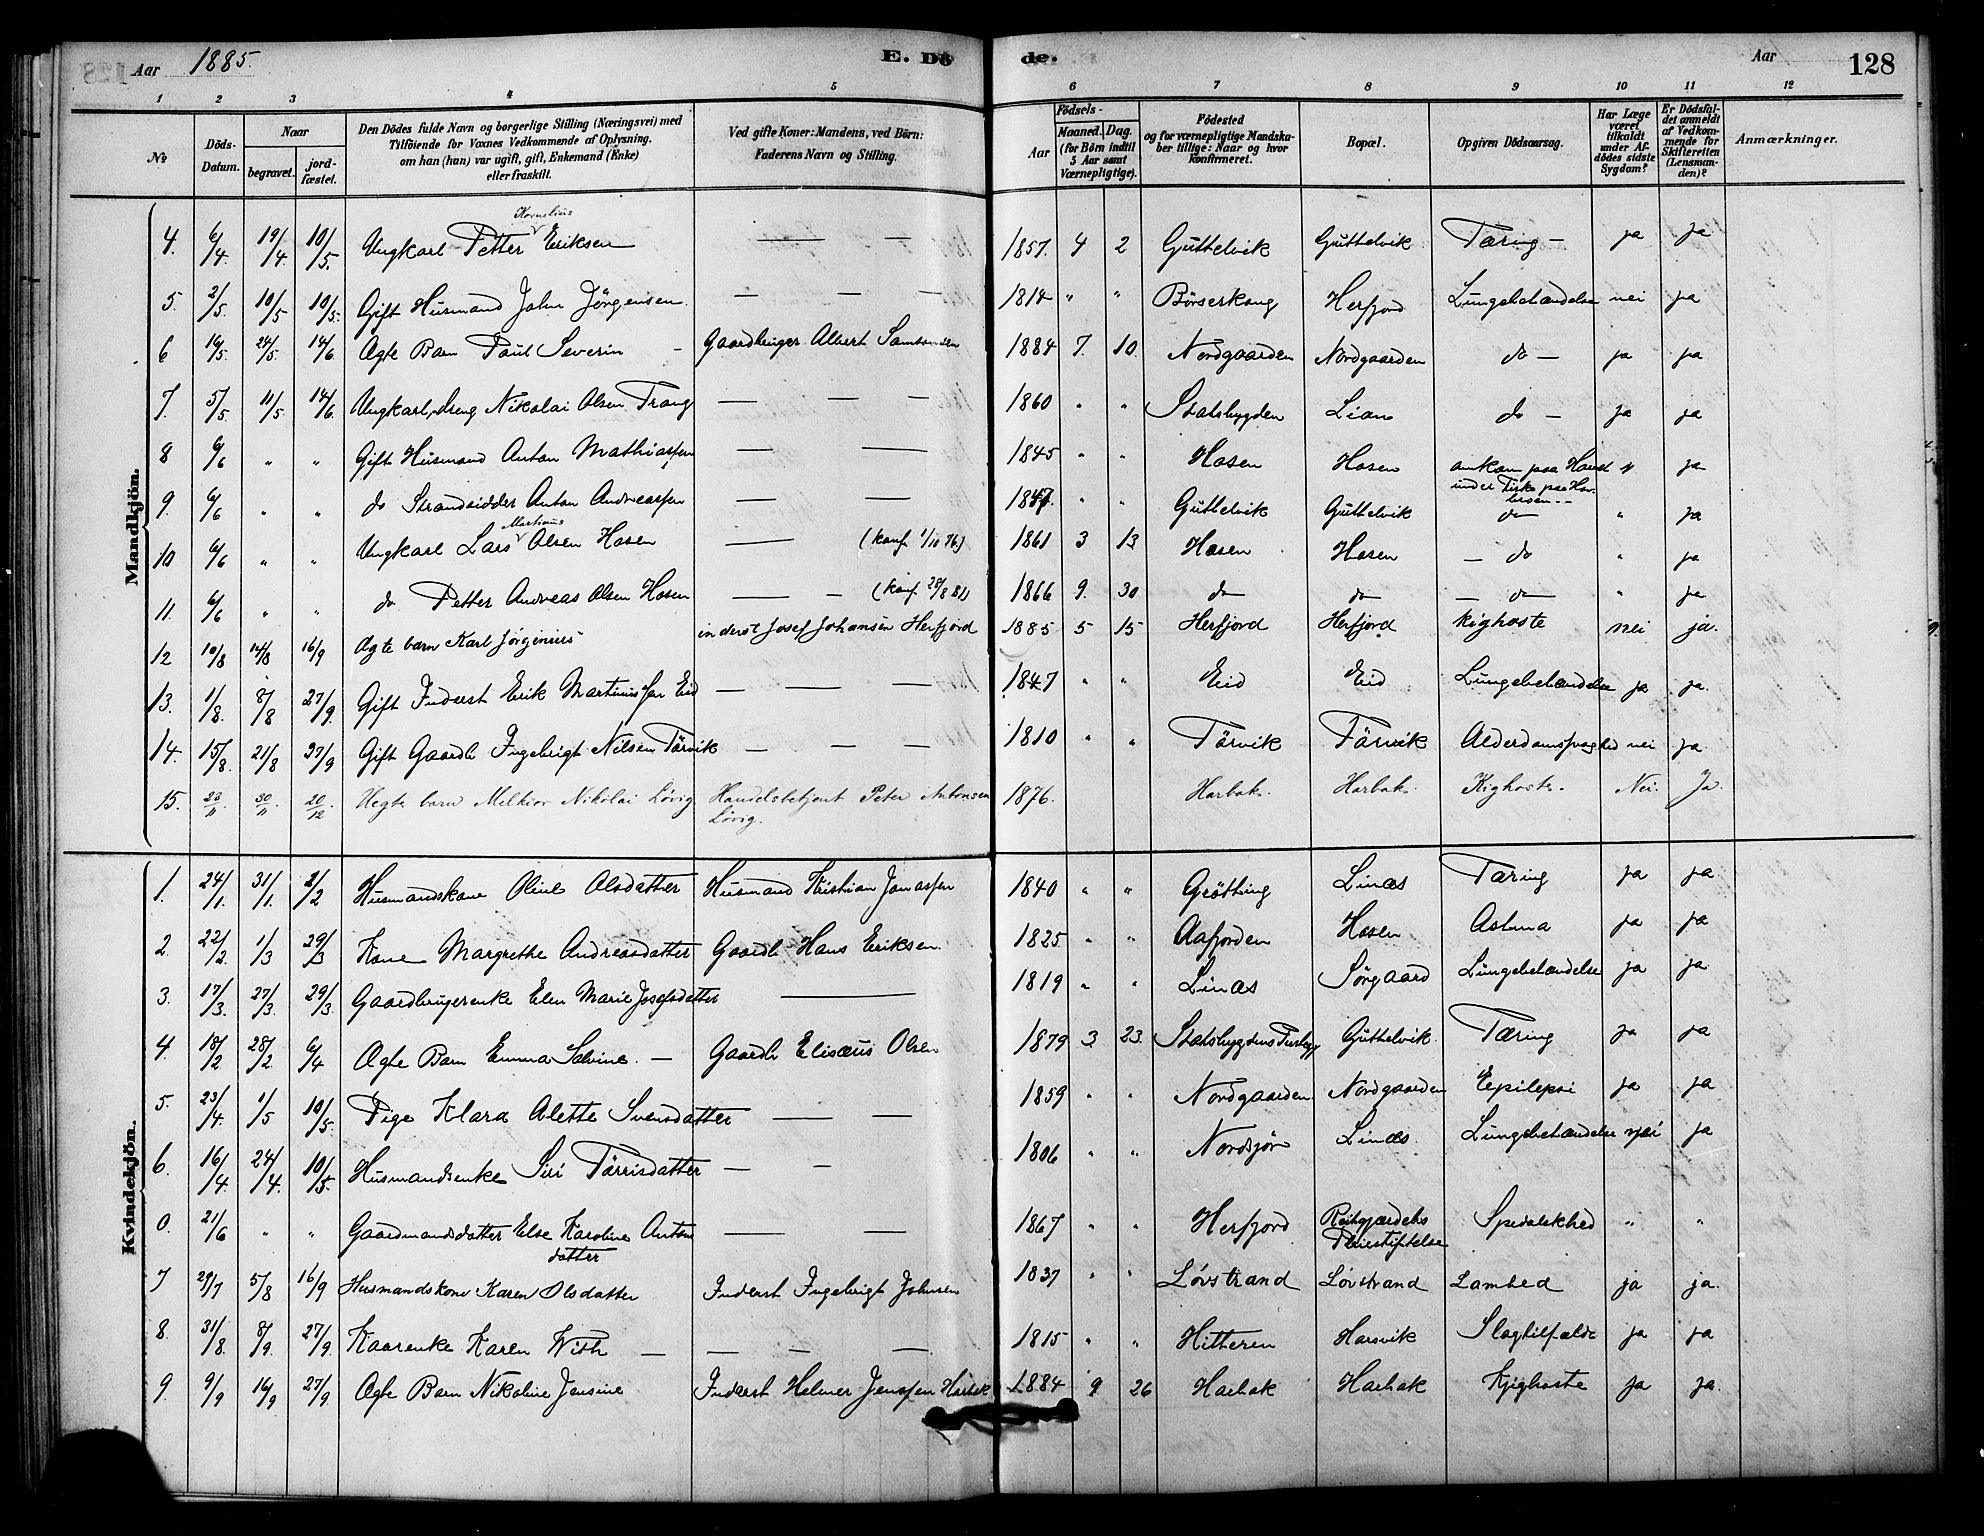 Aar 1885. E. Döde. Aar 128
1 2 3 4 5 6 7 8 9 10 11 12
No Döds-Datum. Naar begravet. jordfæstet. Den Dödes fulde Navn og borgerlige Stilling (Næringsvei) med Tilföiende for Voxnes Vedkommende af Oplysning, om han (hun) var ugift, gift, Enkemand (Enke) eller fraskilt. Ved gifte Koner: Mandens, ved Börn: Faderens Navn og Stilling. Födsels- Aar Maaned. Dag. (for Börn indtil 5 Aar samt Værnepligtige). Födested og for værnepligtige Mandskaber tillige: Naar og hvor konfirmeret. Bopæl. Opgiven Dödsaarsag. Har Læge været tilkaldt under Afdödes sidste Sygdom? Er Dödsfaldet anmeldt af Vedkommende for Skifteretten (Lensmanden)? Anmærkninger.
Mandkjön.
4. 6/4. 19/4. 10/5. Ungkarl Petter Kornelius Eriksen — — 1857. 4 2 Guttelvik Guttelvik Tæring — ja ja
5. 2/5. 10/5 10/5. Gift Husmand John Jörgensen — — — 1814 " " Börserkong Herfjord Lungebetændelse nei ja
6 16/5. 24/5. 14/6 Ægte Barn Paul Severin — Gaardbruger Albert 1884 7. 10. Nordgaarden Nordgaarden do — ja ja
7. 5/5 11/5 14/6. Ungkarl, dreng Nikolai Olsen Trang — — — 1860 " " Statsbygden Lian do — ja ja
8 6/6 " " Gift Husmand Anton Mathiassen — — 1845 " " Hosen Hosen omkom paa Havet under Fiske paa " ja
9. 6/6 " " do Strandsidder Anton Andreassen — — 1847. " " Guttelvik Guttelvik do " ja
10 6/6 " " Ungkarl Lars Martinus Olsen Hosen — (konf. 1/10 76.) 1861 3 13 Hosen Hosen — do " ja
11. 6/6 " " do Petter Andreas Olsen Hosen — — (konf. 28/8 81) 1866 9. 30 do do — do — " ja
12 10/8 14/8 16/9 Ægte barn Karl Jørginius inderst Josef Johansen Herfjord 1885 5 15 Herfjord Herfjord kighoste nei ja.
13. 1/8. 8/8 27/9. Gift Inderst Erik Martinussen Eid — — — 1847 " " Eid Eid Lungebetændelse ja ja.
14. 15/8. 21/8 27/9 Gift Gaardb Ingebrigt Nilsen Tärvik — — — 1810 " " Tärvik Tärvik Alderdomssvaghed nei ja
15. 23/11. 30/11 20/12. Uegte barn Melkior Nikolai Løvig. Handelsbetjent Peter Antonsen Løvig. 1876. Harbak. Harbak. Kighoste. Nei. Ja.
Kvindekjön.
1. 24/1. 31/1. 2/2 Husmandskone Oline Olsdatter Husmand Kristian Jonassen 1840 " " Gräthing Linæs Tæring ja ja
2. 22/2. 1/3 29/3 Kone Margrethe Andreasdatter Gaardb Hans Eriksen. 1825 " " Aafjorden Hosen Astma ja ja
3. 17/3. 27/3. 29/3. Gaardbrugerenke Elen Marie Josefsdatter — 1819 " " Linæs Sörgaard Lungebetændelse ja ja
4. 18/2 28/2. 6/4 Ægte Barn Emma Sabine. — Gaardb Elisæus Olsen 1879 3 23. Guttelvik Tæring ja ja
5. 23/4. 1/5 10/5. Pige Klara Olette Svensdatter — — 1859 " " Nordgaarden Nordgaarden Epilepsi ja ja
6. 16/4. 24/4. 10/5. Husmandsenke Siri Tärrisdatter — — 1806 " " Nordsjör Linæs. Lungebetændelse nei ja
0. 21/6 " " Gaardmandsdatter Else Karoline Antonsdatter — — 1867 " " Herfjord Reitgjærdets Pleiestiftelse Spedalskhed " "
7 29/7 5/8 16/9 Husmandskone Karen Olsdatter Inderst Ingebrigt Johnsen 1837 " " Løvstrand Løvstrand Lamhed ja ja.
8. 31/8. 8/9. 27/9. Kaarenke Karen With — — — — 1815 " " Hitteren Harsvik Slagtilfælde ja ja
9. 9/9 16/9 27/9 Ægte Barn Nikoline Jensine Inderst Helmer Jenssen Harbak 1884 9 26 Harbak Harbak Kjighoste ja ja.